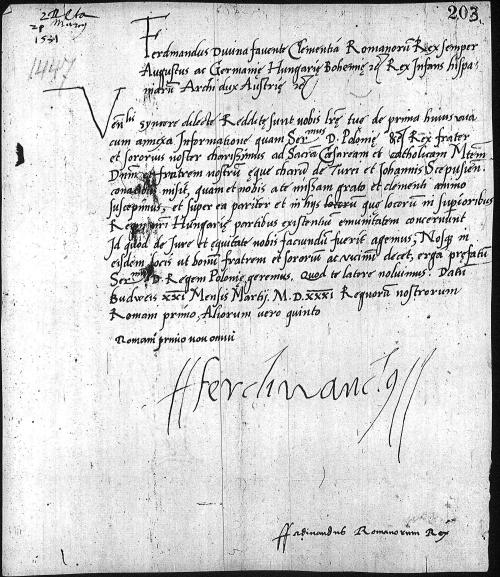 203
1531
1447
Ferdinandus Divina favente Clementia Romanorū Rex semper
Augustus ac Germanię Hungarię Bohemię Rex Infans hispa-
niarū Archidux Austrię
syncere dilecte Redditę sunt nobis lr̄ę tuę de prima huius una
cum annexa Informatione quam Ser.mus D. Polonię Rex frater
et sororius noster charissimus ad Sacrā Cęsaream et catholicam Mtem
Dnūm et fratrem nostrū ęque charū de Turci et Johannis Scepusien.
conatibus misit, quam et nobis a te missam grato et clementi animo
suscepimus, et super ea pariter et in hys que locorū in superioribus
Hungarię partibus existentiū emunitatem concernunt
Id quod de Jure et equitate nobis faciundū fuerit agemus, Nosq in
eisdem locis ut bonū fratrem et sororiū ac vicinū decet, erga prefatū
Ser.mum D. Regem Polonię geremus. Quod te latere noluimus. Datū
Budweis xxi Mensis Martij. M. D. xxxi Regnorū nostrorum
Romani primo, Aliorum vero quinto
Romani primo
Ferdinandus
Ferdinandus Romanorum Rex